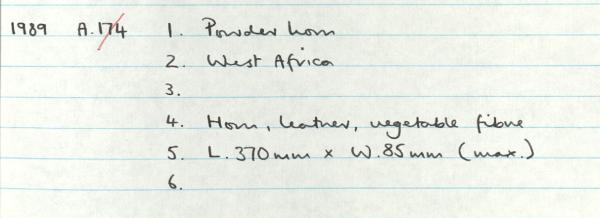 1989 A.174 1. Powder horn
2. West Africa
3.
4. Horn, leather, vegetable fibre
5. L.370mm x W.85mm (max.)
6.